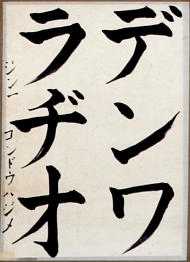 デンワ
ラヂオ
シンー コンドウハジメ